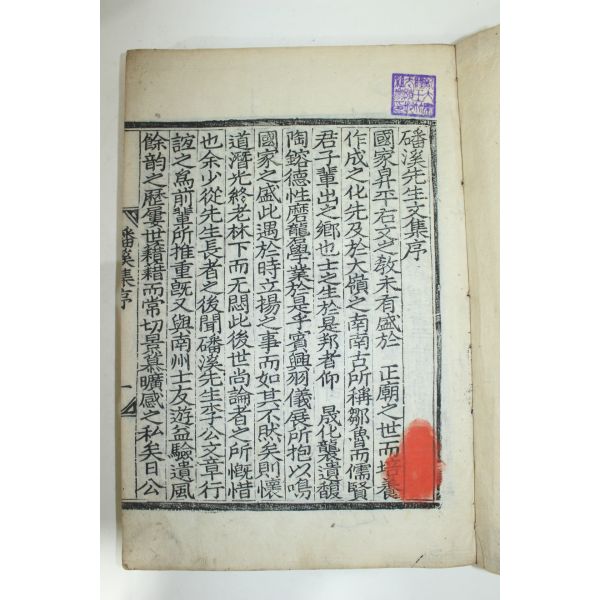 磻溪先生文集序
國家昇平右文之敎未有盛於 正廟之世而培養
作成之化先及於大嶺之南南古所稱鄒魯而儒賢
君子輩出之鄕也士之生於是邦者仰 晟化襲遺馥
陶鎔德性磨礱學業於是乎賓興羽儀展所抱以鳴
國家之盛此遇於時立揚之事而如其不然矣則懷
道潛光終老林下而無悶此後世尙論者之所慨惜
也余少從先生長者之後聞磻溪先生李公文章行
誼之爲前輩所推重旣又與南州士友遊益驗遺風
餘韵之歷屢世藉藉而常切景慕曠感之私矣日公
磻溪集序
一